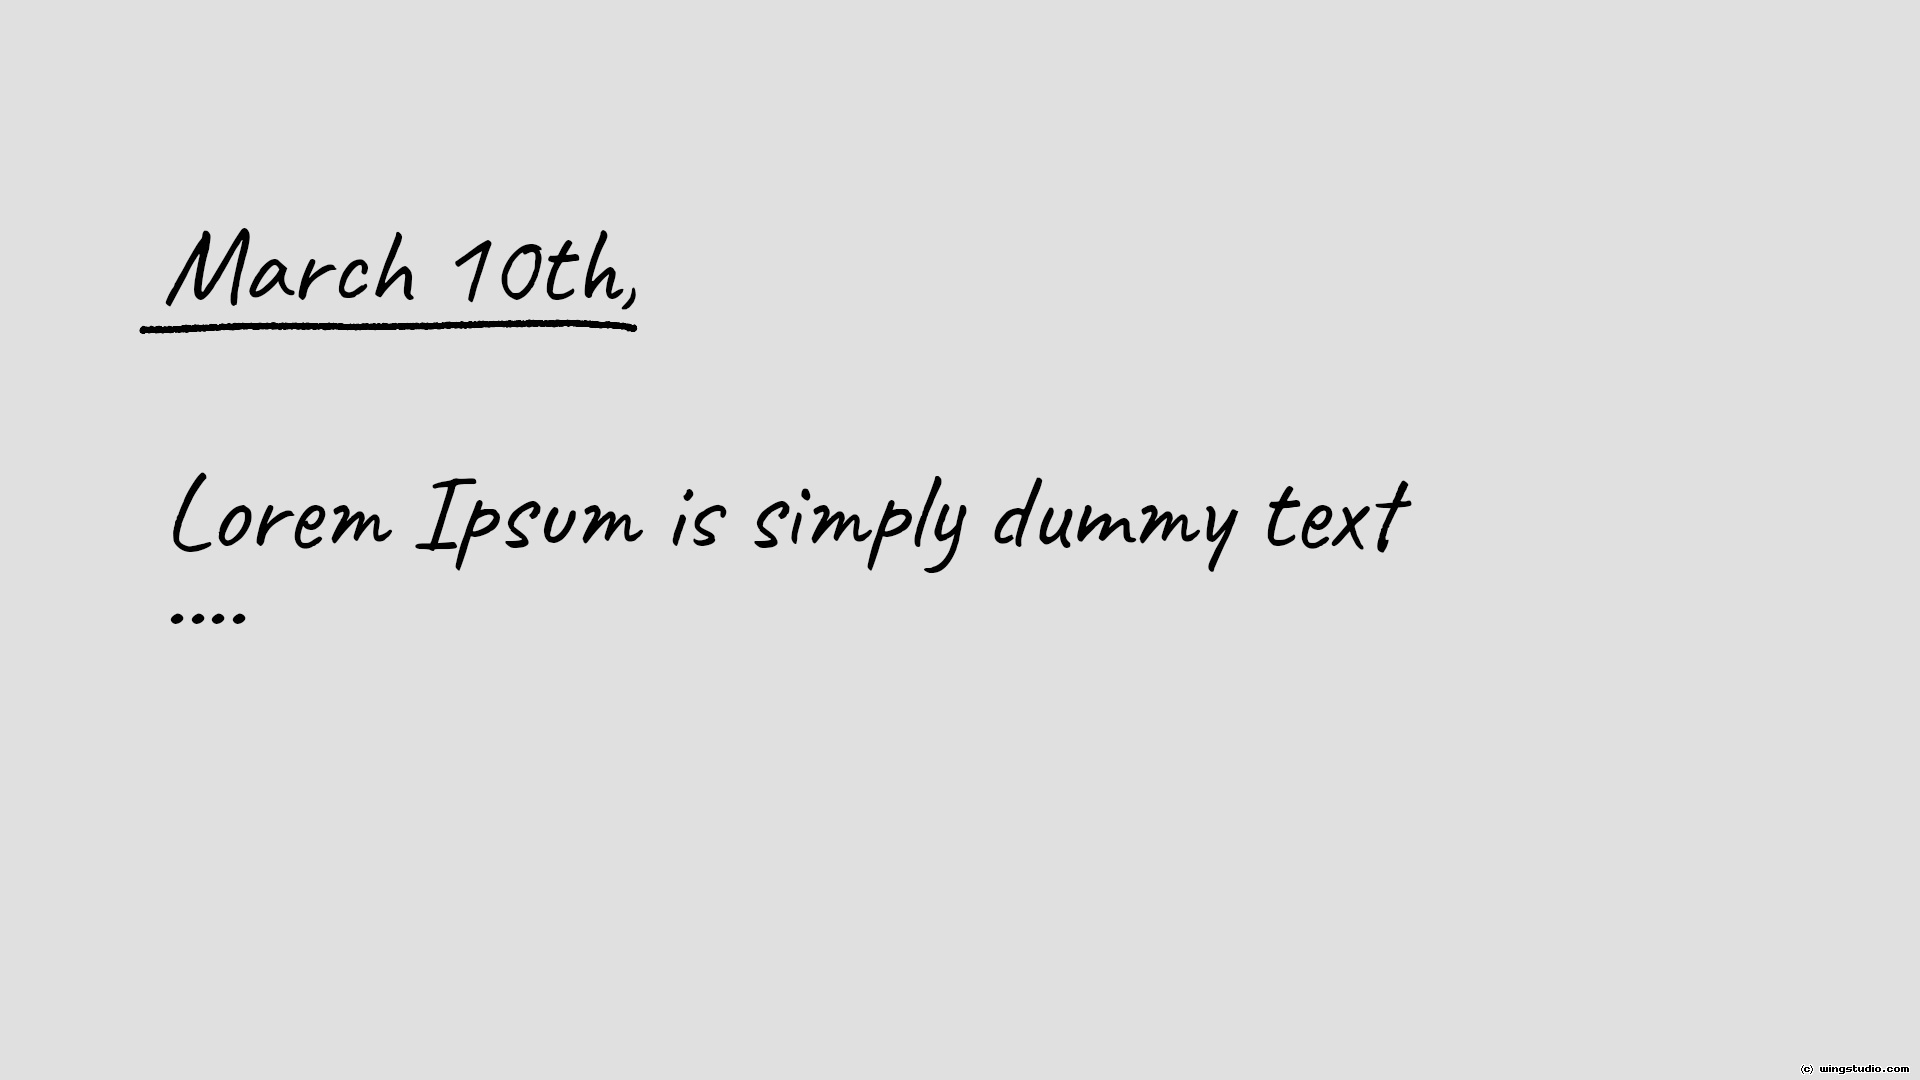 March 10th,
Lorem Ipsum is simply dummy text
....
(c) wingstudio.com